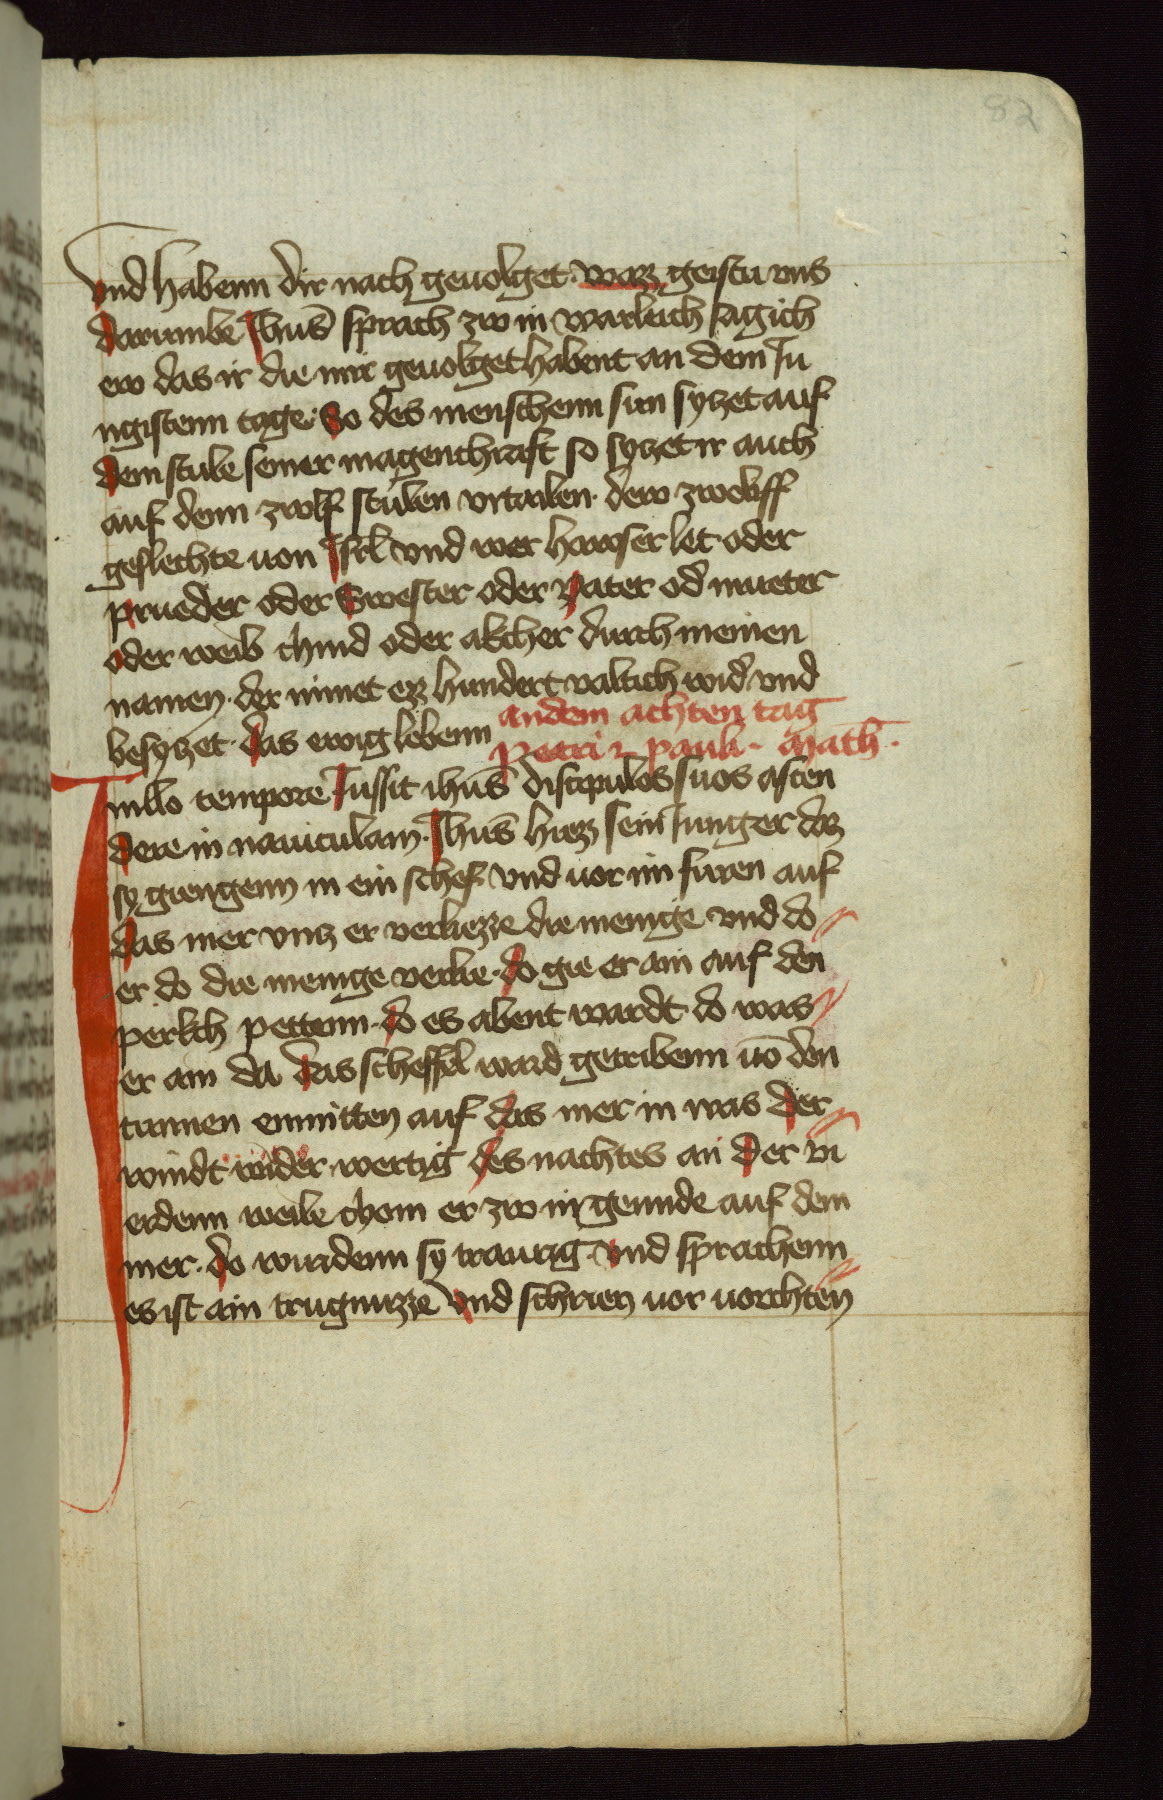 82
Vnd habenn dir nach geuolget · waz geistu vns
darumbe Jhus̄ sprach zw in warleich sag ich
ew das ir die mir geuolget habent an dem Ju
ngistenn tage · So des menschenn sun syzet auf
dem stule seiner magenchraft so syzet ir auch
auf denn zwlf stulen vrtailen · dew zwelff
geslechte uon Jsrl vnd wer hawser let oder
prueder oder Swester oder vater od̄ mueter
oder weib chind oder akcher durch meinen
namen · der nimet ez hundert valtich wid̄ vnd
besyzet · das ewig lebenn
an dem achten tag
Petri & pauli · Math̄ ·
Jn illo tempore Jussit ihus̄ discipulos suos ascen
dere in nauiculam · Jhus̄ hiez sein Junger daz
sy giengenn in ein schef vnd uor im furen auf
das mer vnz er verliezze die menige vnd do
er do die menige verlie · do gie er ain auf den
perkch pettenn · do es abent wardt · do was
er ain da das scheffel ward getribenn uō den
tunnen enmitten auf das mer in was der
windt wider wertig des nachtes an der vi
erdenn weile chom er zw in geunde auf dem
mer · do wurdenn sy traurig · vnd sprachenn
es ist ain trugnuzze vnd schrien uor uorchten